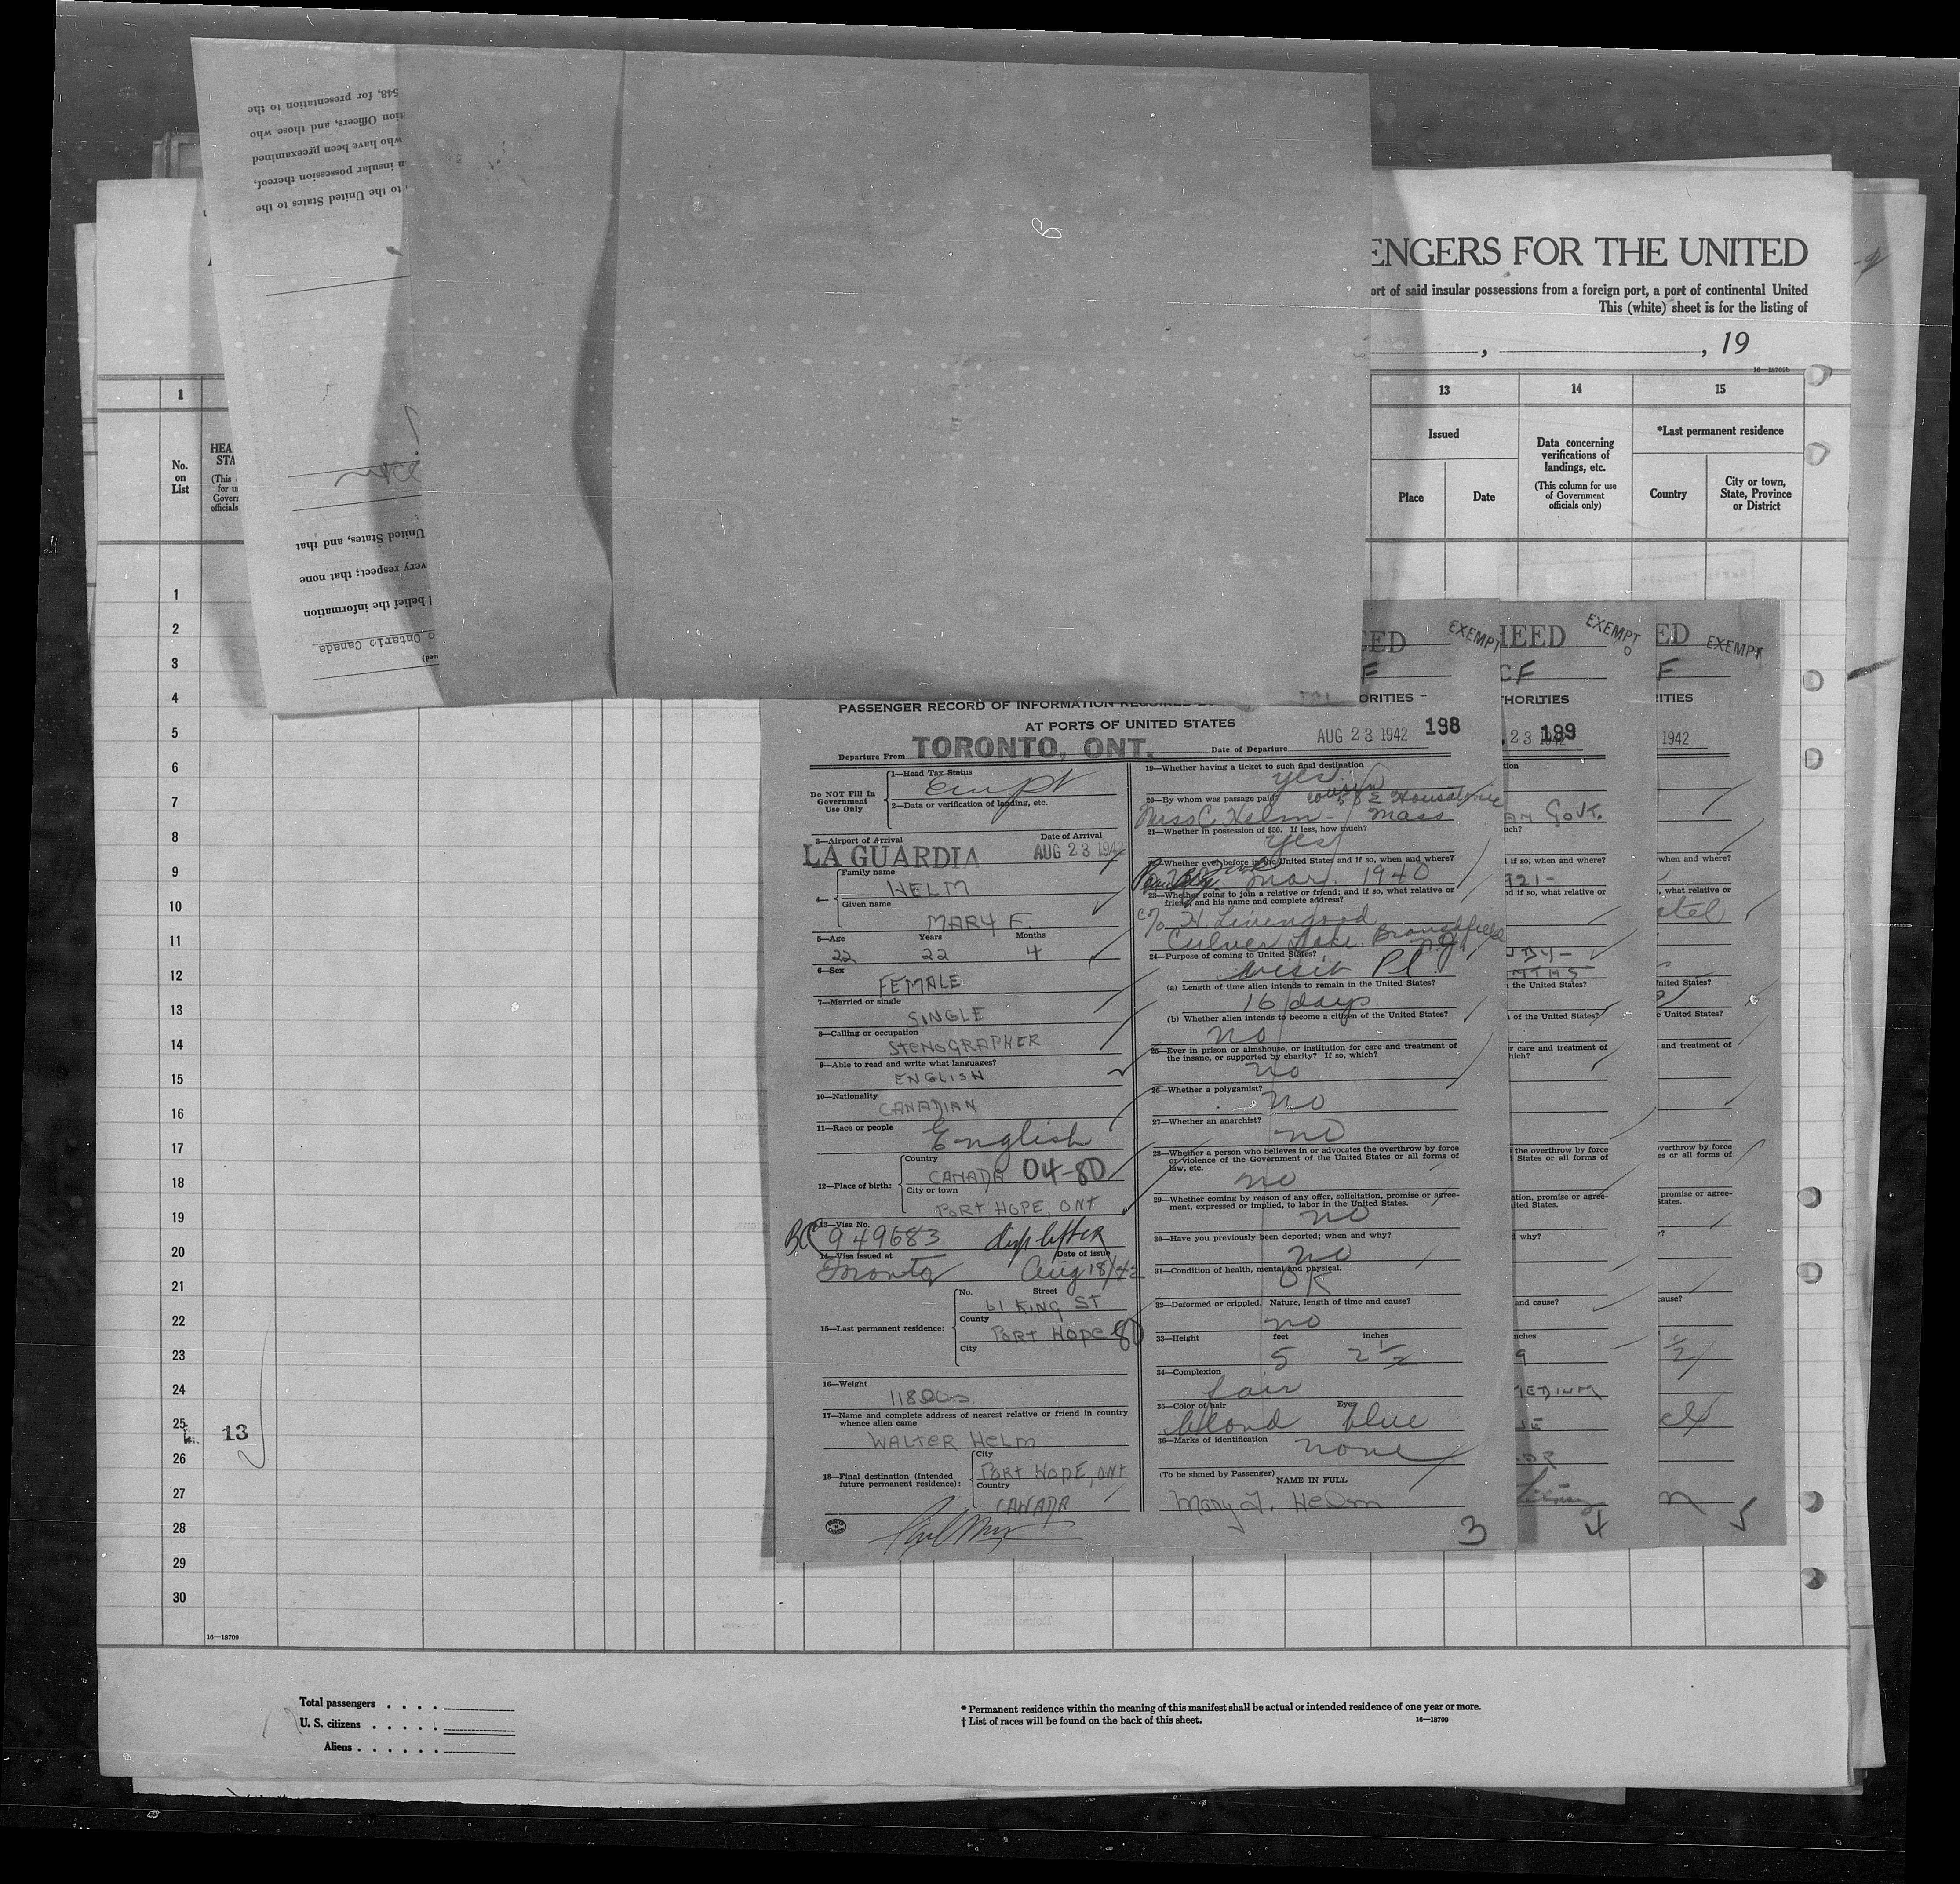 548, for presentation to the
tion Officers, and those who
who have been preexamined
n insular possession thereof,
to the United States to the
United States, and that
very respect; that none
belief the information
o Ontario Canada
ENGERS FOR THE UNITED
ort of said insular possessions from a foreign port, a port of continental United
This (white) sheet is for the listing of
, , 19
16—18709b
1
13 14 15
No. on List
HEA
STA
(This
for u
Govern
officials
Issued
Place Date
Data concerning verifications of landings, etc.
(This column for use of Government officials only)
*Last permanent residence
Country
City or town, State, Province or District
1
2
3
4
5
6
7
8
9
10
11
12
13
14
15
16
17
18
19
20
21
22
23
24
25
26
27
28
29
30
13
16—18709
PASSENGER RECORD OF INFORMATION REQUIRED
ORITIES
AT PORTS OF UNITED STATES
198
Departure From TORONTO, ONT.
Date of Departure AUG 23 1942
Do NOT Fill In Government Use Only
1—Head Tax Status
2—Data or verification of landing, etc.
3—Airport of Arrival Date of Arrival
LA GUARDIA AUG 23 1942
4—
Family name
HELM
Given name
MARY F.
5—Age Years Months
22 22 4
6—Sex
FEMALE
7—Married or single
SINGLE
8—Calling or occupation
STENOGRAPHER
9—Able to read and write what languages?
ENGLISH
10—Nationality
CANADIAN
11—Race or people
English
12—Place of birth:
Country
CANADA 04-80
City or town
PORT HOPE, ONT
13—Visa No.
BC 949683
14—Visa issued at Date of issue
Toronto Aug 18/42
15—Last permanent residence:
No. Street
61 KING ST
County
PORT HOPE 80
City
16—Weight
118 lbs.
17—Name and complete address of nearest relative or friend in country
whence alien came
WALTER HELM
18—Final destination (Intended
future permanent residence):
City
PORT HOPE, ONT
Country
CANADA
19—Whether having a ticket to such final destination
yes
20—By whom was passage paid? cousin
Miss C. Helm - Mass
21—Whether in possession of $50. If less, how much?
Yes
22—Whether ever before in the United States and if so, when and where?
Mar. 1940
23—Whether going to join a relative or friend; and if so, what relative or
friend, and his name and complete address?
c/o H. Livengood
Culver Lake, Branchfield
N.J.
24—Purpose of coming to United States?
visit Pl
(a) Length of time alien intends to remain in the United States?
16 days
(b) Whether alien intends to become a citizen of the United States?
no
25—Ever in prison or almshouse, or institution for care and treatment of
the insane, or supported by charity? If so, which?
no
26—Whether a polygamist?
no
27—Whether an anarchist?
no
28—Whether a person who believes in or advocates the overthrow by force
or violence of the Government of the United States or all forms of
law, etc.
no
29—Whether coming by reason of any offer, solicitation, promise or agree-
ment, expressed or implied, to labor in the United States.
no
30—Have you previously been deported; when and why?
no
31—Condition of health, mental and physical.
OK
32—Deformed or crippled. Nature, length of time and cause?
no
33—Height feet inches
5 2 1/2
34—Complexion
fair
35—Color of hair Eyes
blond blue
36—Marks of identification
none
(To be signed by Passenger)
NAME IN FULL
Mary F. Helm
3
EED EXEMPT
F
IEED EXEMPT
CF
THORITIES
23 1942 199
tion
AN Govt.
uch?
if so, when and where?
921-
nd if so, what relative or
MTHS
the United States?
of the United States?
r care and treatment of
hich?
the overthrow by force
States or all forms of
ation, promise or agree-
nited States.
why?
and cause?
nches
9
MEDIUM
4
ED EXEMPT
F
ITIES
1942
when and where?
, what relative or
otel
United States?
e United States?
and treatment of
verthrow by force
es or all forms of
promise or agree-
States.
cause?
1/2
5
Total passengers . . . .
U. S. citizens . . . . .
Aliens . . . . . .
* Permanent residence within the meaning of this manifest shall be actual or intended residence of one year or more.
† List of races will be found on the back of this sheet. 16—18709